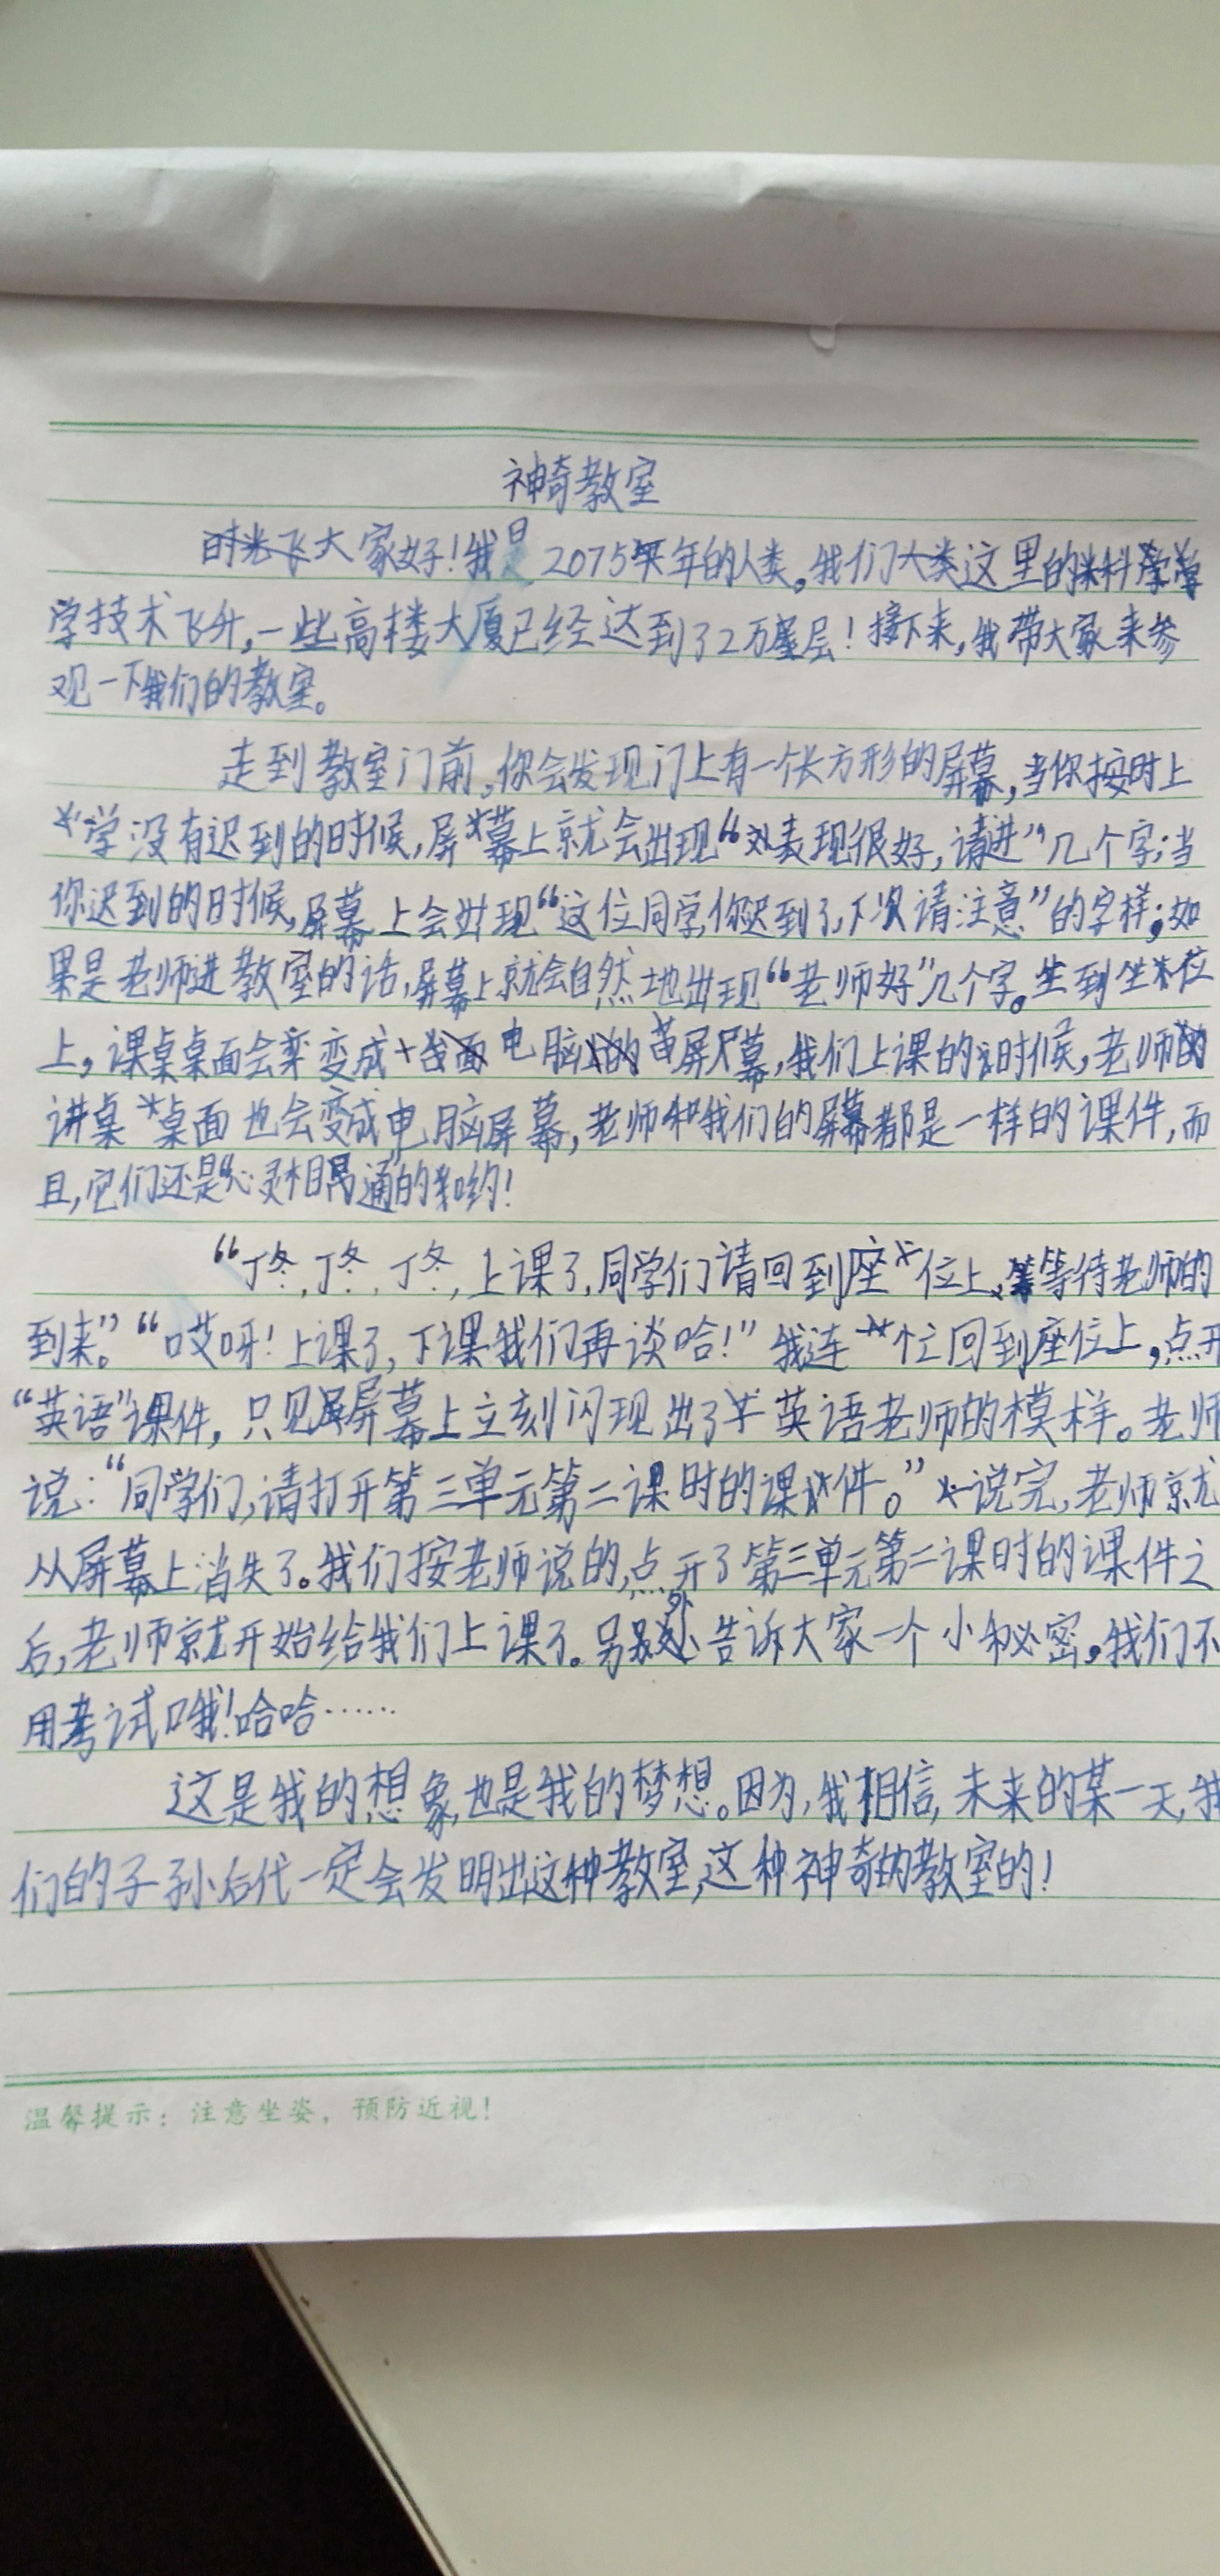 神奇教室
大家好！我是2075年的人类。我们这里的科
学技术飞升，一些高楼大厦已经达到了2万层！接下来，我带大家来参
观一下我们的教室。
走到教室门前，你会发现门上有一个长方形的屏幕，当你按时上
学没有迟到的时候，屏幕上就会出现“表现很好，请进”几个字；当
你迟到的时候，屏幕上会出现“这位同学，你迟到了，下次请注意”的字样；如
果是老师进教室的话，屏幕上就会自然地出现“老师好”几个字。坐到坐位
上，课桌桌面会变成电脑屏幕，我们上课的时候，老师
讲桌桌面也会变成电脑屏幕，老师和我们的屏幕都是一样的课件，而
且，它们还是心灵相通的哟！
“丁冬，丁冬，丁冬，上课了，同学们请回到座位上，等待老师的
到来。”“哎呀！上课了，下课我们再谈哈！”我连忙回到座位上，点开
“英语”课件，只见屏幕上立刻闪现出了英语老师的模样。老师
说：“同学们，请打开第三单元第二课时的课件。”说完，老师就
从屏幕上消失了。我们按老师说的，点开了第三单元第二课时的课件之
后，老师就开始给我们上课了。另外告诉大家一个小秘密，我们不
用考试哦！哈哈……
这是我的想象，也是我的梦想。因为，我相信，未来的某一天，我
们的子孙后代一定会发明出这种教室，这种神奇的教室的！
温馨提示：注意坐姿，预防近视！